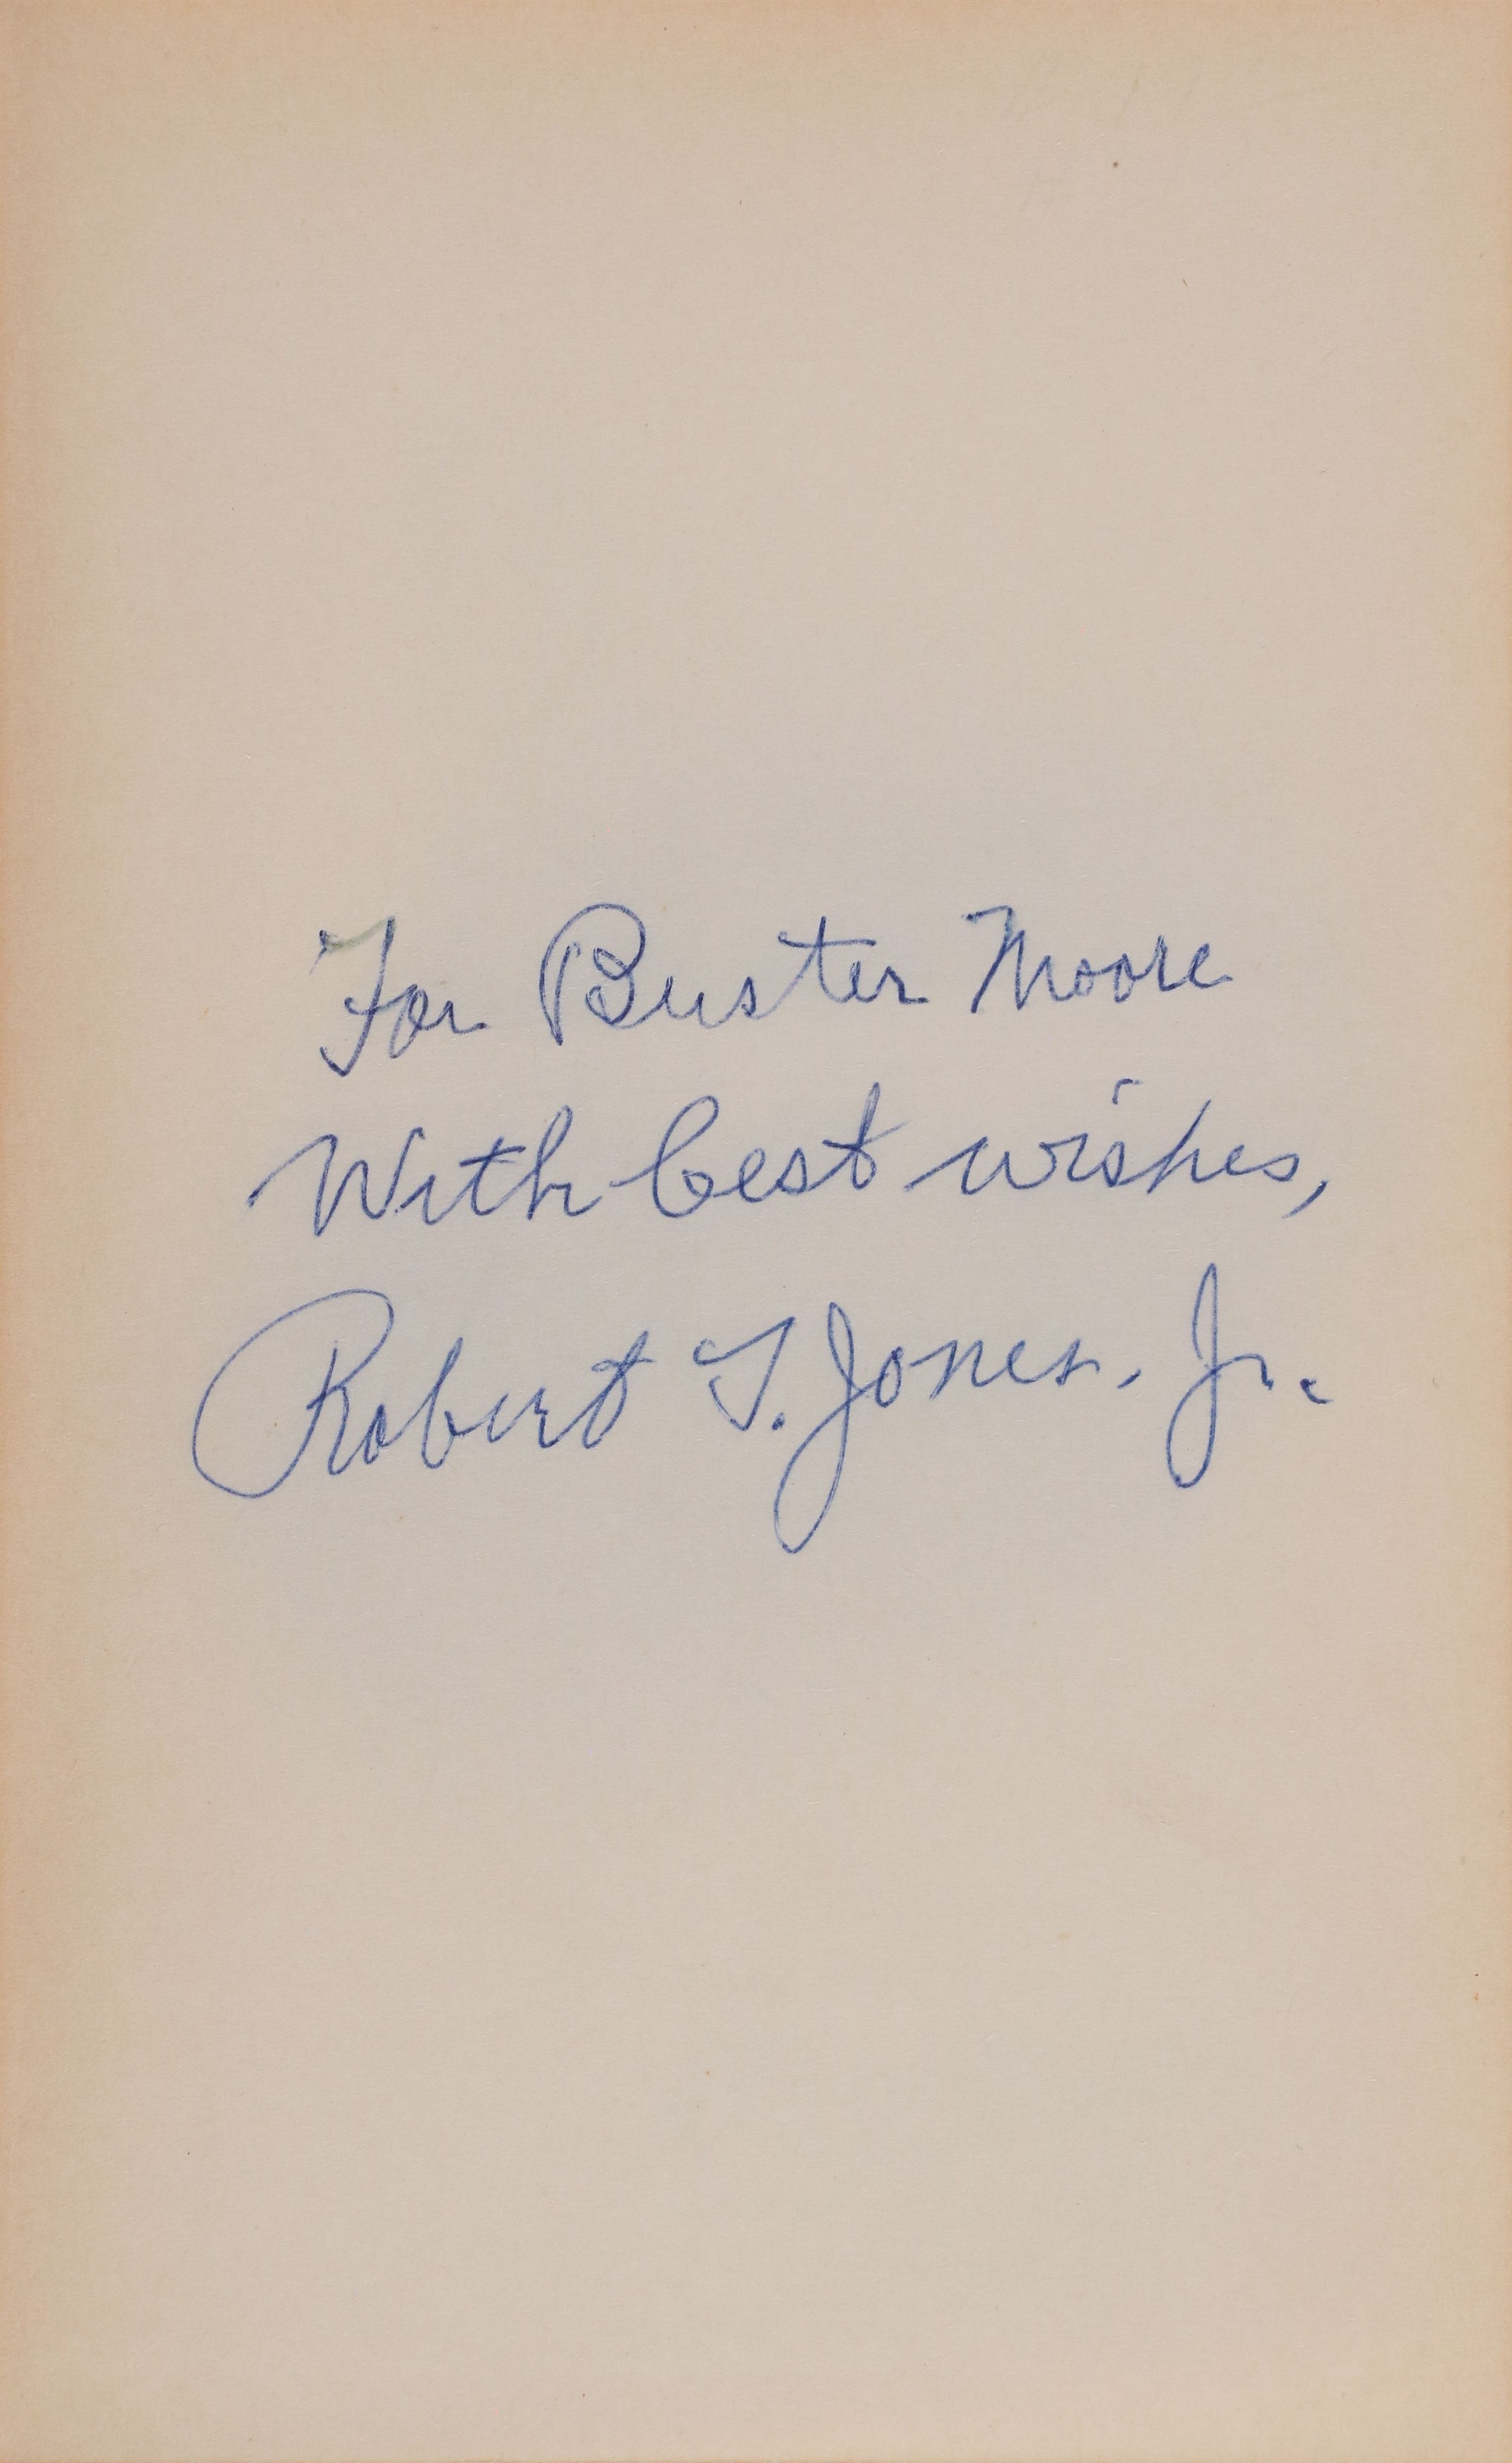 For Buster Moore
With best wishes,
Robert T. Jones, Jr.